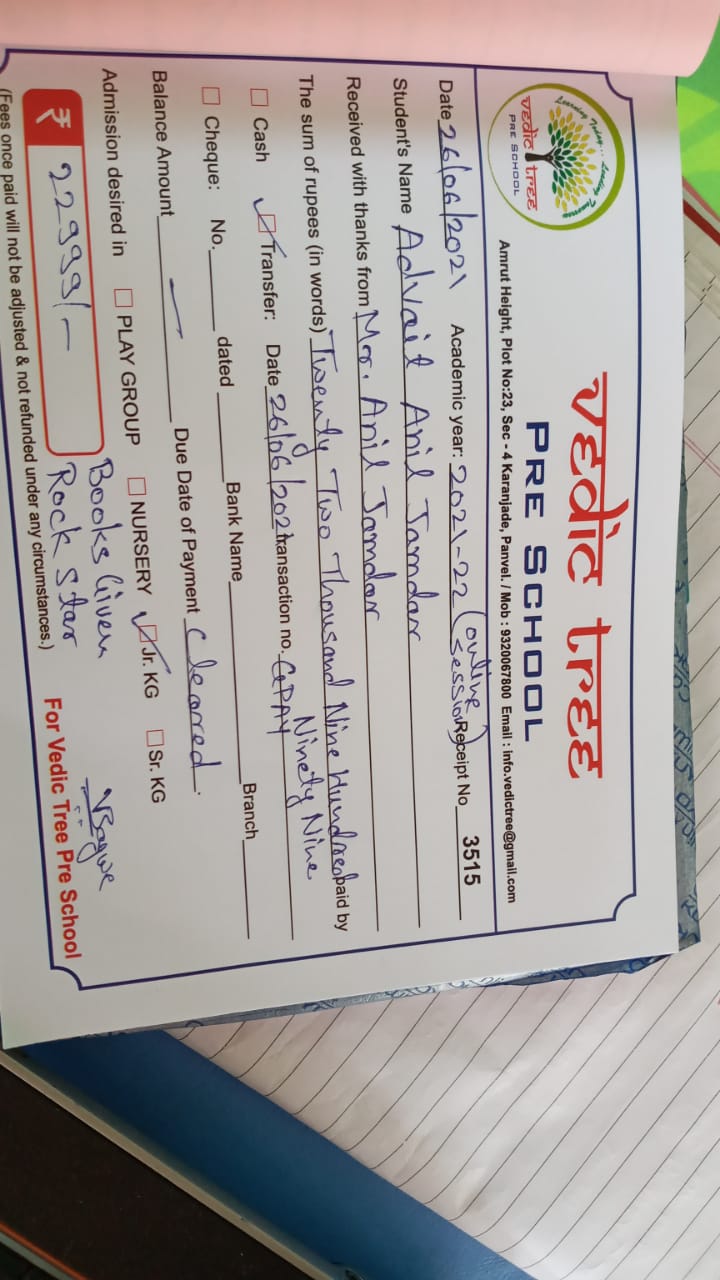 Learning Today... Leading Tomorrow
vedic tree
PRE SCHOOL
vedic tree
PRE SCHOOL
Amrut Height, Plot No:23, Sec - 4 Karanjade, Panvel. / Mob : 9320067800 Email : info.vedictree@gmail.com
Date 26/06/2021 Academic year: 2021-22 (online session) Receipt No 3515
Student's Name Advait Anil Jamdar
Received with thanks from Mr. Anil Jamdar
The sum of rupees (in words) Twenty Two Thousand Nine Hundred paid by
Ninety Nine
Cash Transfer: Date 26/06/2021 transaction no. GPAY
Cheque: No. dated Bank Name Branch
Balance Amount — Due Date of Payment Cleared.
Admission desired in PLAY GROUP NURSERY Jr. KG Sr. KG
₹ 22999/- Books Given
Rock Star
For Vedic Tree Pre School
(Fees once paid will not be adjusted & not refunded under any circumstances.)